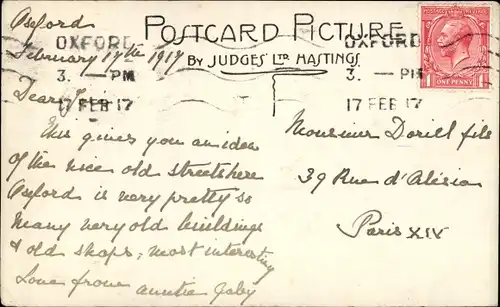 Oxford
February 17th 1917
POSTCARD PICTURE
BY JUDGES' LTD HASTINGS.
OXFORD
3. — PM
17 FEB 17
OXFORD
3. — PM
17 FEB 17
POSTAGE
REVENUE
ONE PENNY
Dear
This gives you an idea
of the nice old streets here
Oxford is very pretty so
many very old buildings
& old shops, most interesting
Love from auntie Gaby
Monsieur Dorill fils
39 Rue d'Alésia
Paris XIV